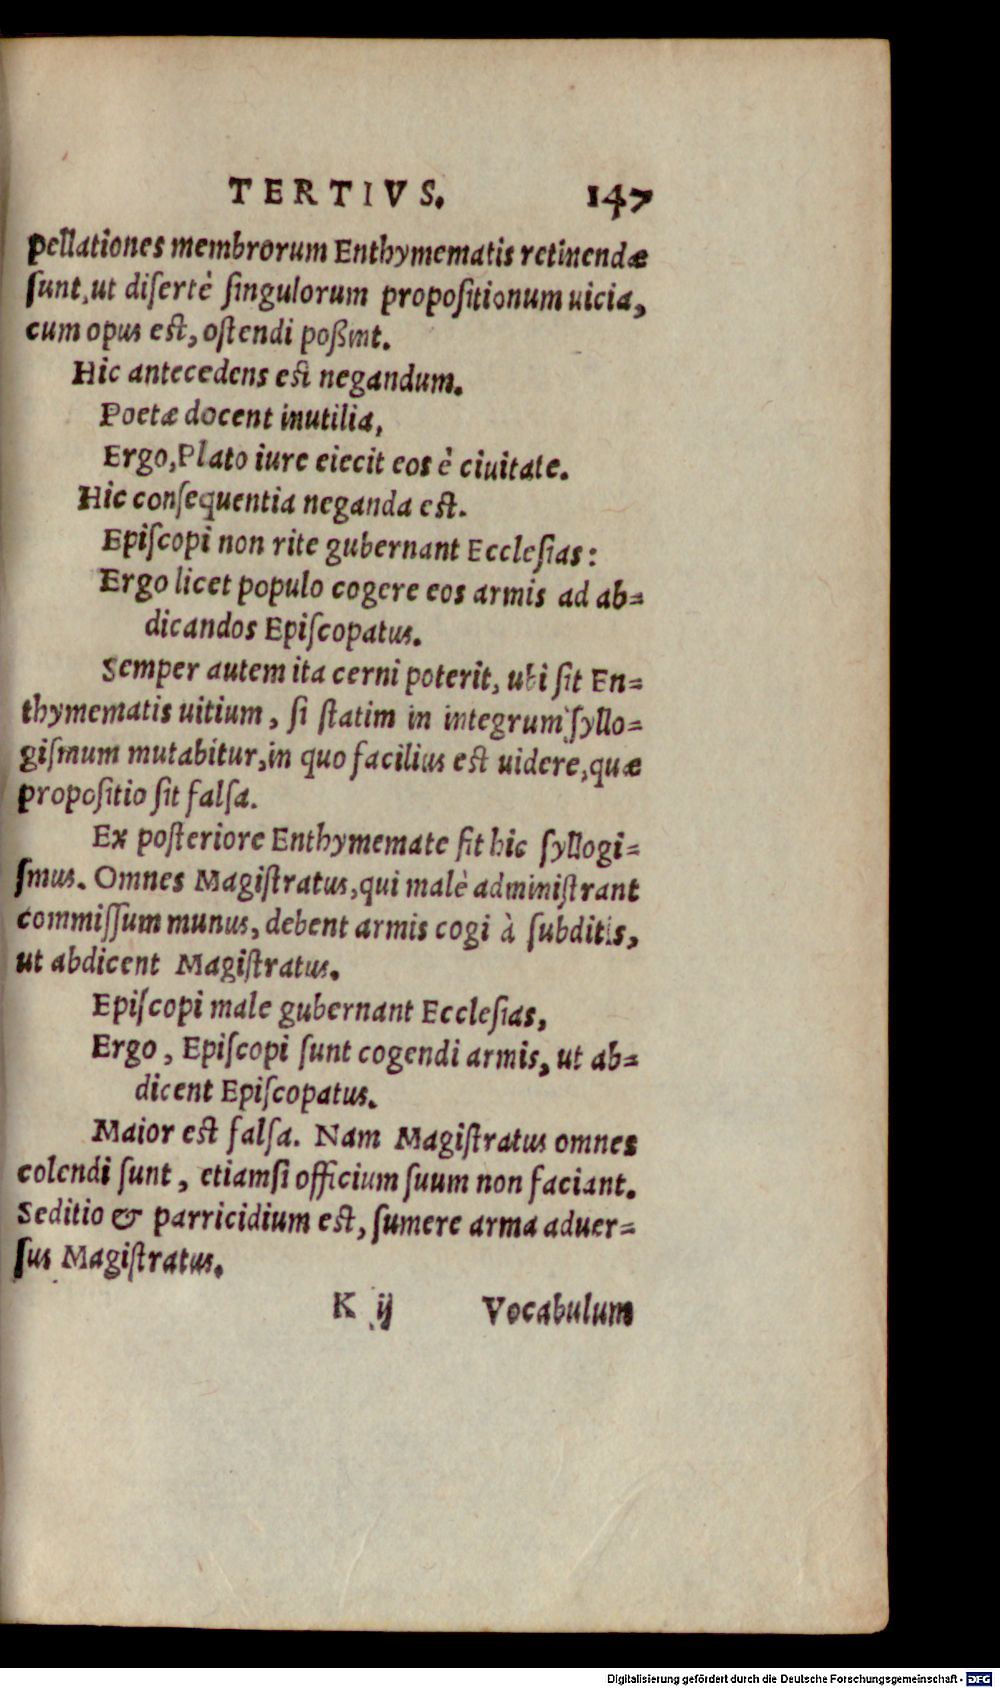 TERTIVS. 147
pellationes membrorum Enthymematis retinendæ
ſunt, ut diſertè ſingulorum propoſitionum uicia,
cum opus eſt, oſtendi poßint.
Hic antecedens eſt negandum.
Poetæ docent inutilia,
Ergo, Plato iure eiecit eos è ciuitate.
Hic conſequentia neganda eſt.
Epiſcopi non rite gubernant Eccleſias:
Ergo licet populo cogere eos armis ad ab=
dicandos Epiſcopatus.
Semper autem ita cerni poterit, ubi ſit En=
thymematis uitium, ſi ſtatim in integrum ſyllo=
giſmum mutabitur, in quo facilius eſt uidere, quæ
propoſitio ſit falſa.
Ex poſteriore Enthymemate fit hic ſyllogi=
ſmus. Omnes Magiſtratus, qui malè adminiſtrant
commiſſum munus, debent armis cogi à ſubditis,
ut abdicent Magiſtratus.
Epiſcopi male gubernant Eccleſias,
Ergo, Epiſcopi ſunt cogendi armis, ut ab=
dicent Epiſcopatus.
Maior eſt falſa. Nam Magiſtratus omnes
colendi ſunt, etiamſi officium ſuum non faciant.
Seditio & parricidium eſt, ſumere arma aduer=
ſus Magiſtratus.
K ij Vocabulum
Digitalisierung gefördert durch die Deutsche Forschungsgemeinschaft - DFG